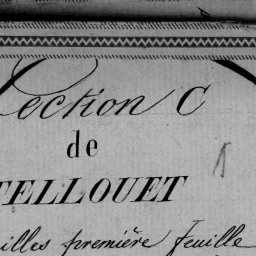 ection C
de
TELLOUET
illes première feuille